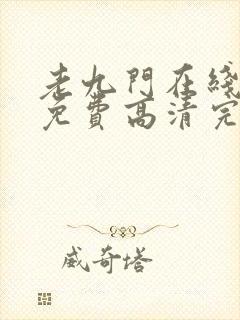 老九門在綫
免費高清完
威奇塔